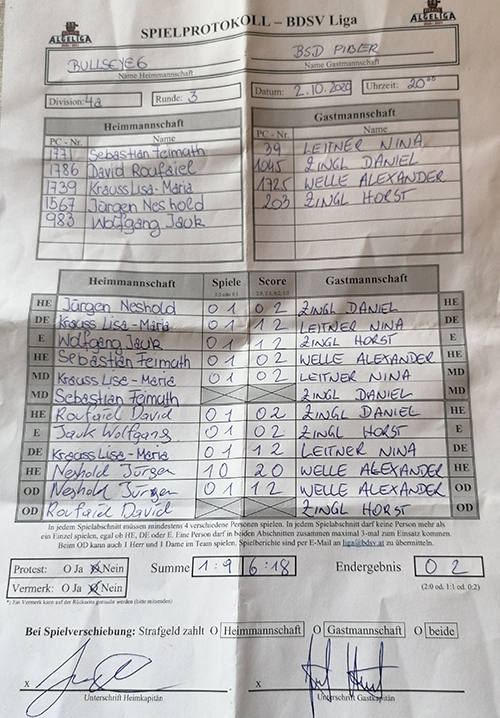 ALGELIGA
SPIELPROTOKOLL – BDSV Liga
ALGELIGA
BULLSEYE 6
BSD PIBER
Name Heimmannschaft
Name Gastmannschaft
Division: 4a Runde: 3 Datum: 2.10.2020 Uhrzeit: 20⁰⁰
Heimmannschaft Gastmannschaft
PC - Nr. Name PC - Nr. Name
1771 Sebastian Feimuth 39 LEITNER NINA
1786 David Roufaiel 1045 ZINGL DANIEL
1739 Krauss Lisa-Maria 1725 WELLE ALEXANDER
1567 Jürgen Neshold 203 ZINGL HORST
983 Wolfgang Jauk
Heimmannschaft Spiele Score Gastmannschaft
HE Jürgen Neshold 0 1 0 2 ZINGL DANIEL HE
DE Krauss Lisa-Maria 0 1 1 2 LEITNER NINA DE
E Wolfgang Jauk 0 1 1 2 ZINGL HORST E
HE Sebastian Feimuth 0 1 0 2 WELLE ALEXANDER HE
MD Krauss Lisa-Maria 0 1 0 2 LEITNER NINA MD
MD Sebastian Feimuth ZINGL DANIEL MD
HE Roufaiel David 0 1 0 2 ZINGL DANIEL HE
E Jauk Wolfgang 0 1 0 2 ZINGL HORST E
DE Krauss Lisa-Maria 0 1 1 2 LEITNER NINA DE
HE Neshold Jürgen 1 0 2 0 WELLE ALEXANDER HE
OD Neshold Jürgen 0 1 1 2 WELLE ALEXANDER OD
OD Roufaiel David ZINGL HORST OD
In jedem Spielabschnitt müssen mindestens 4 verschiedene Personen spielen. In jedem Spielabschnitt darf keine Person mehr als
ein Einzel spielen, egal ob HE, DE oder E. Eine Person darf in beiden Abschnitten zusammen maximal 3-mal zum Einsatz kommen.
Beim OD kann auch 1 Herr und 1 Dame im Team spielen. Spielberichte sind per E-Mail an liga@bdsv.at zu übermitteln.
Protest: O Ja O Nein Summe 1 : 9 6 : 18 Endergebnis 0 2
Vermerk: O Ja O Nein (2:0 od. 1:1 od. 0:2)
*) Ein Vermerk kann auf der Rückseite gemacht werden (bitte mitsenden)
Bei Spielverschiebung: Strafgeld zahlt O Heimmannschaft O Gastmannschaft O beide
x x
Unterschrift Heimkapitän Unterschrift Gastkapitän